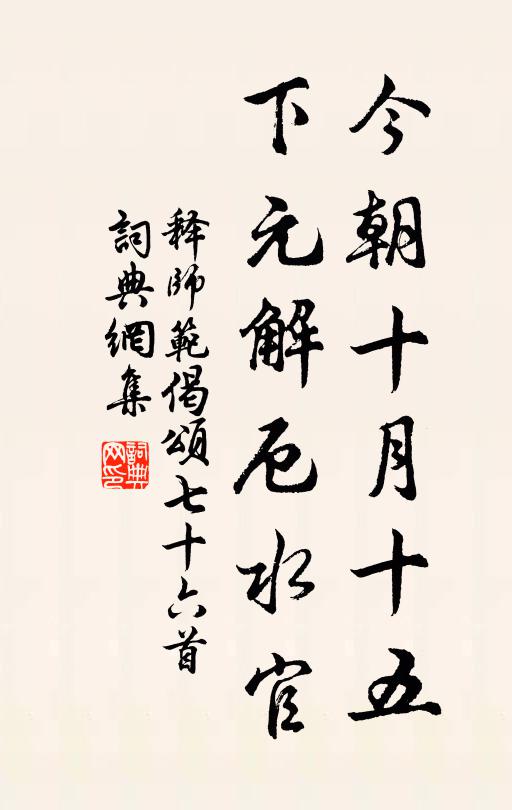 今朝十月十五
下元解厄水官
释師範偈頌七十六首
詞典網集
詞典网印